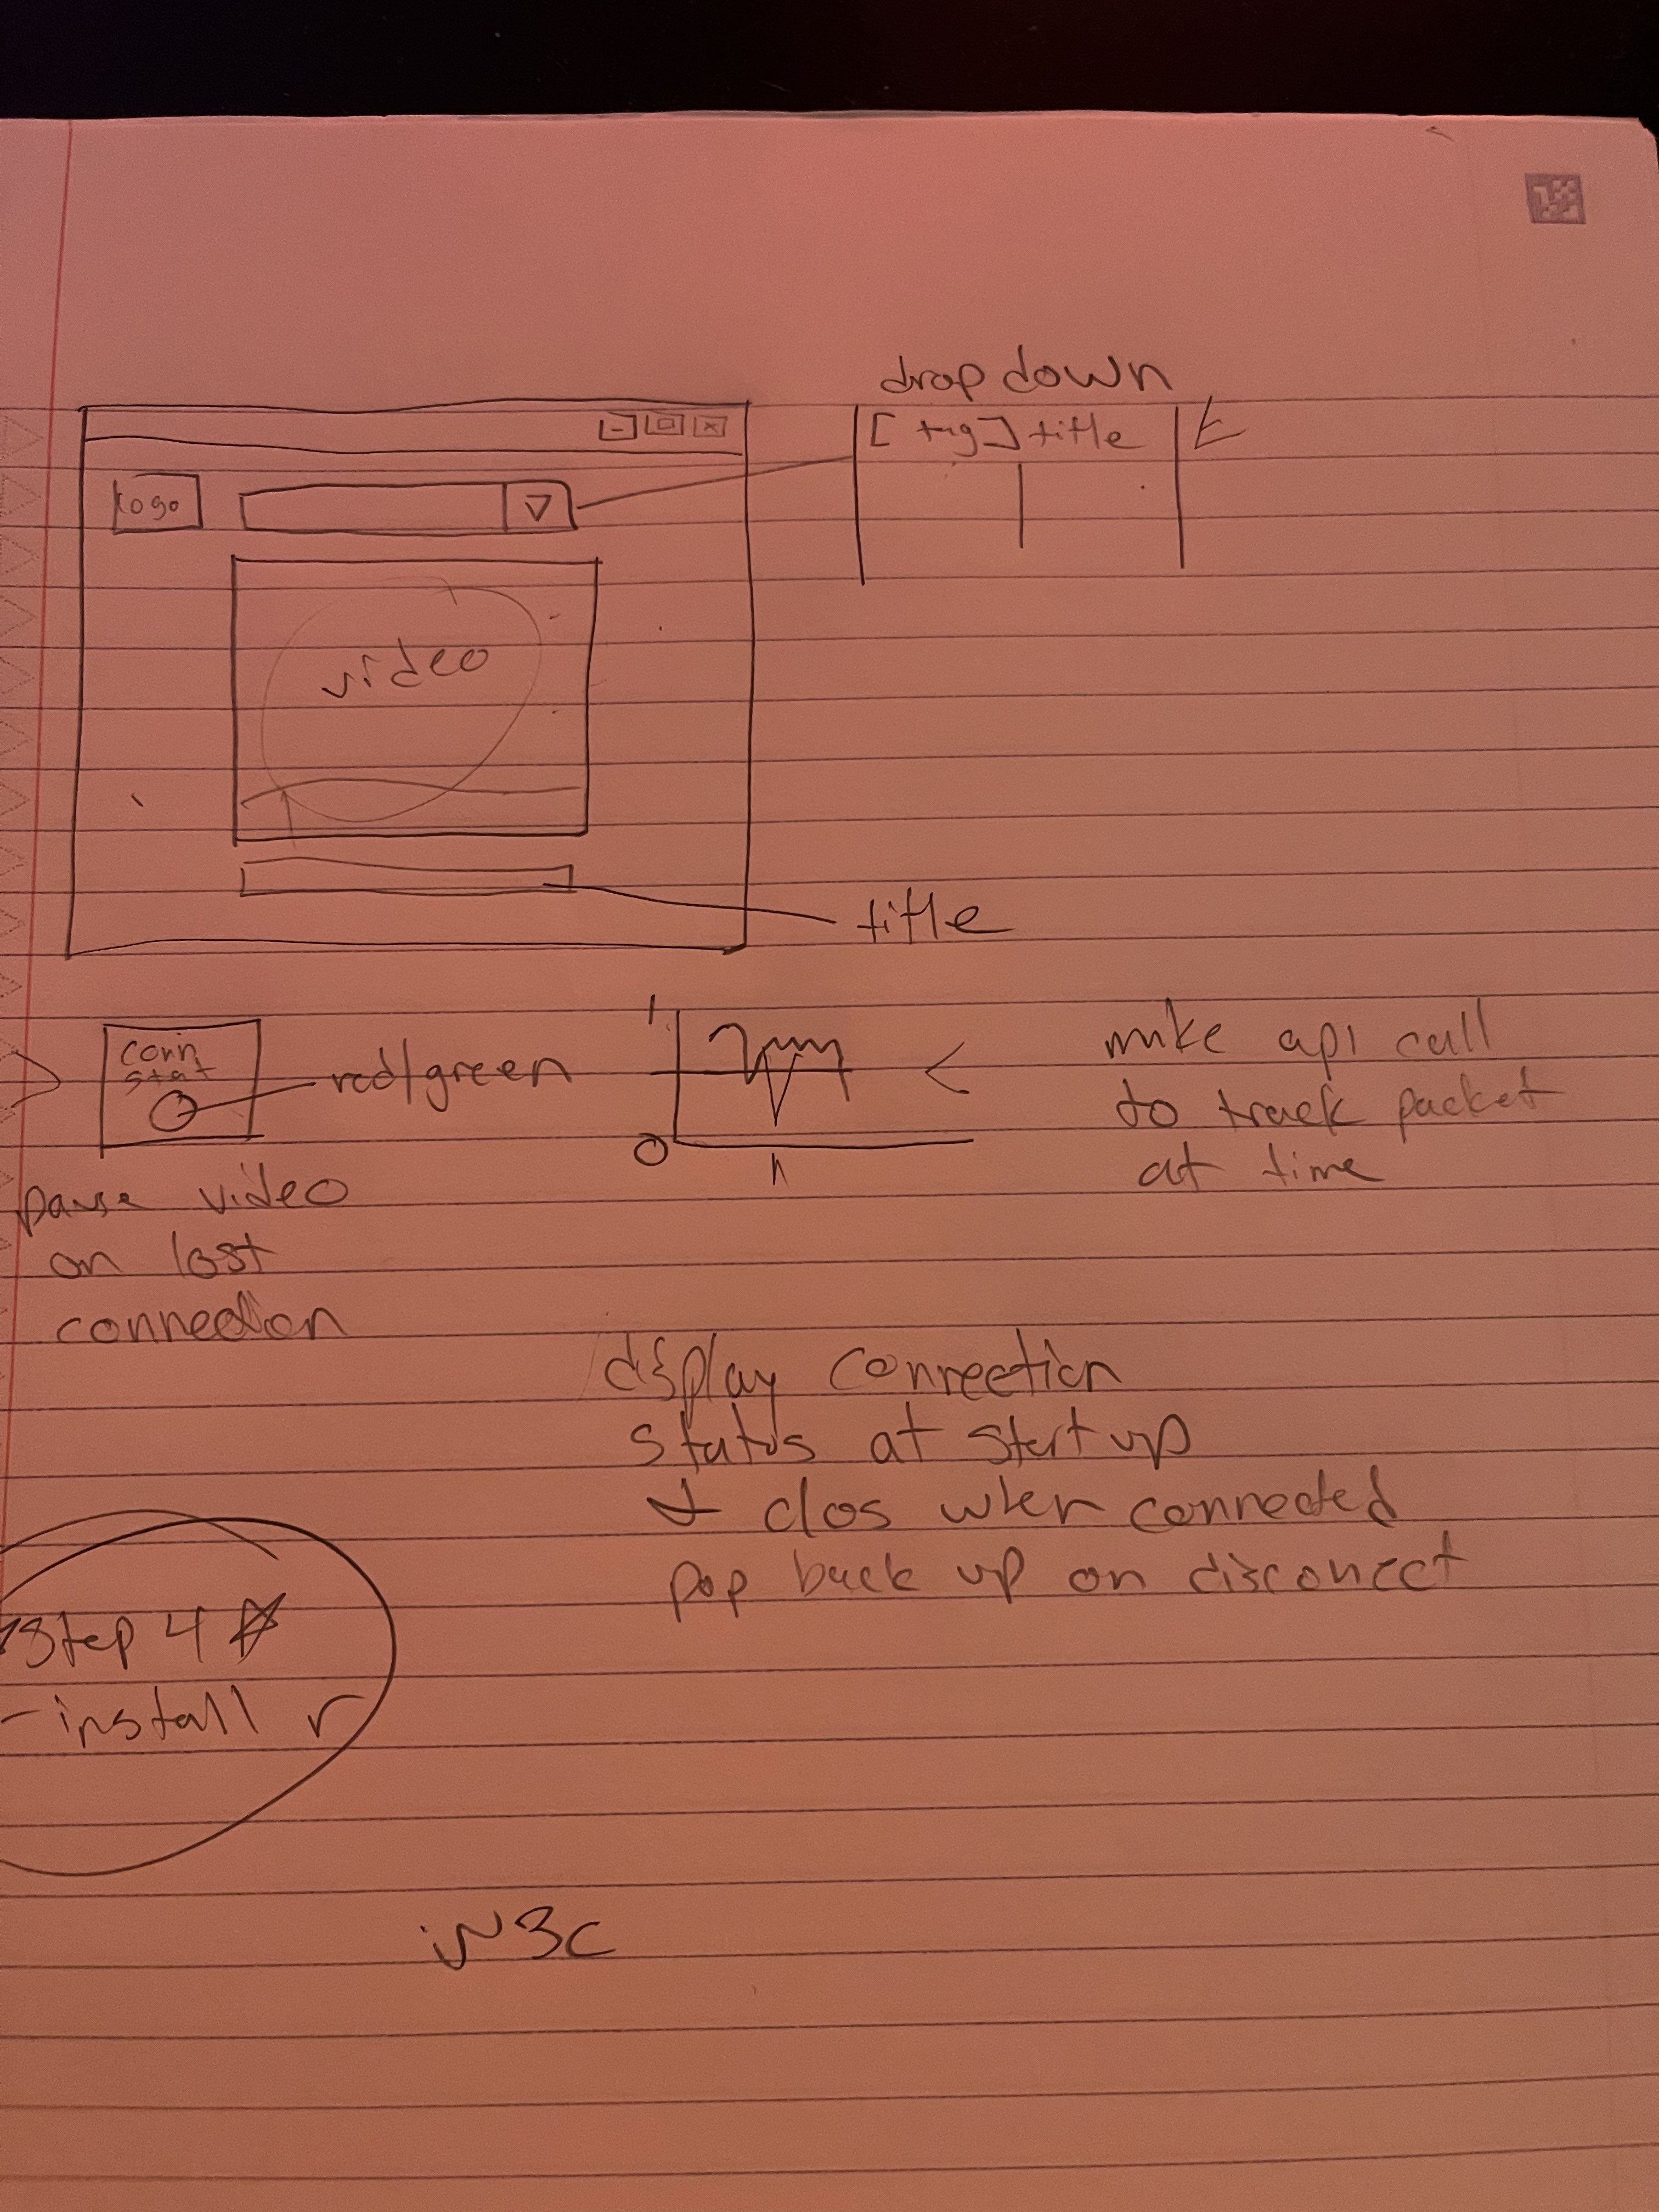 drop down
[tag] title
logo
video
title
conn
stat
red/green
1
0
n
make api call
to track packet
at time
pause video
on lost
connection
display connection
status at start up
+ clos when connected
pop back up on disconect
Step 4
- install r